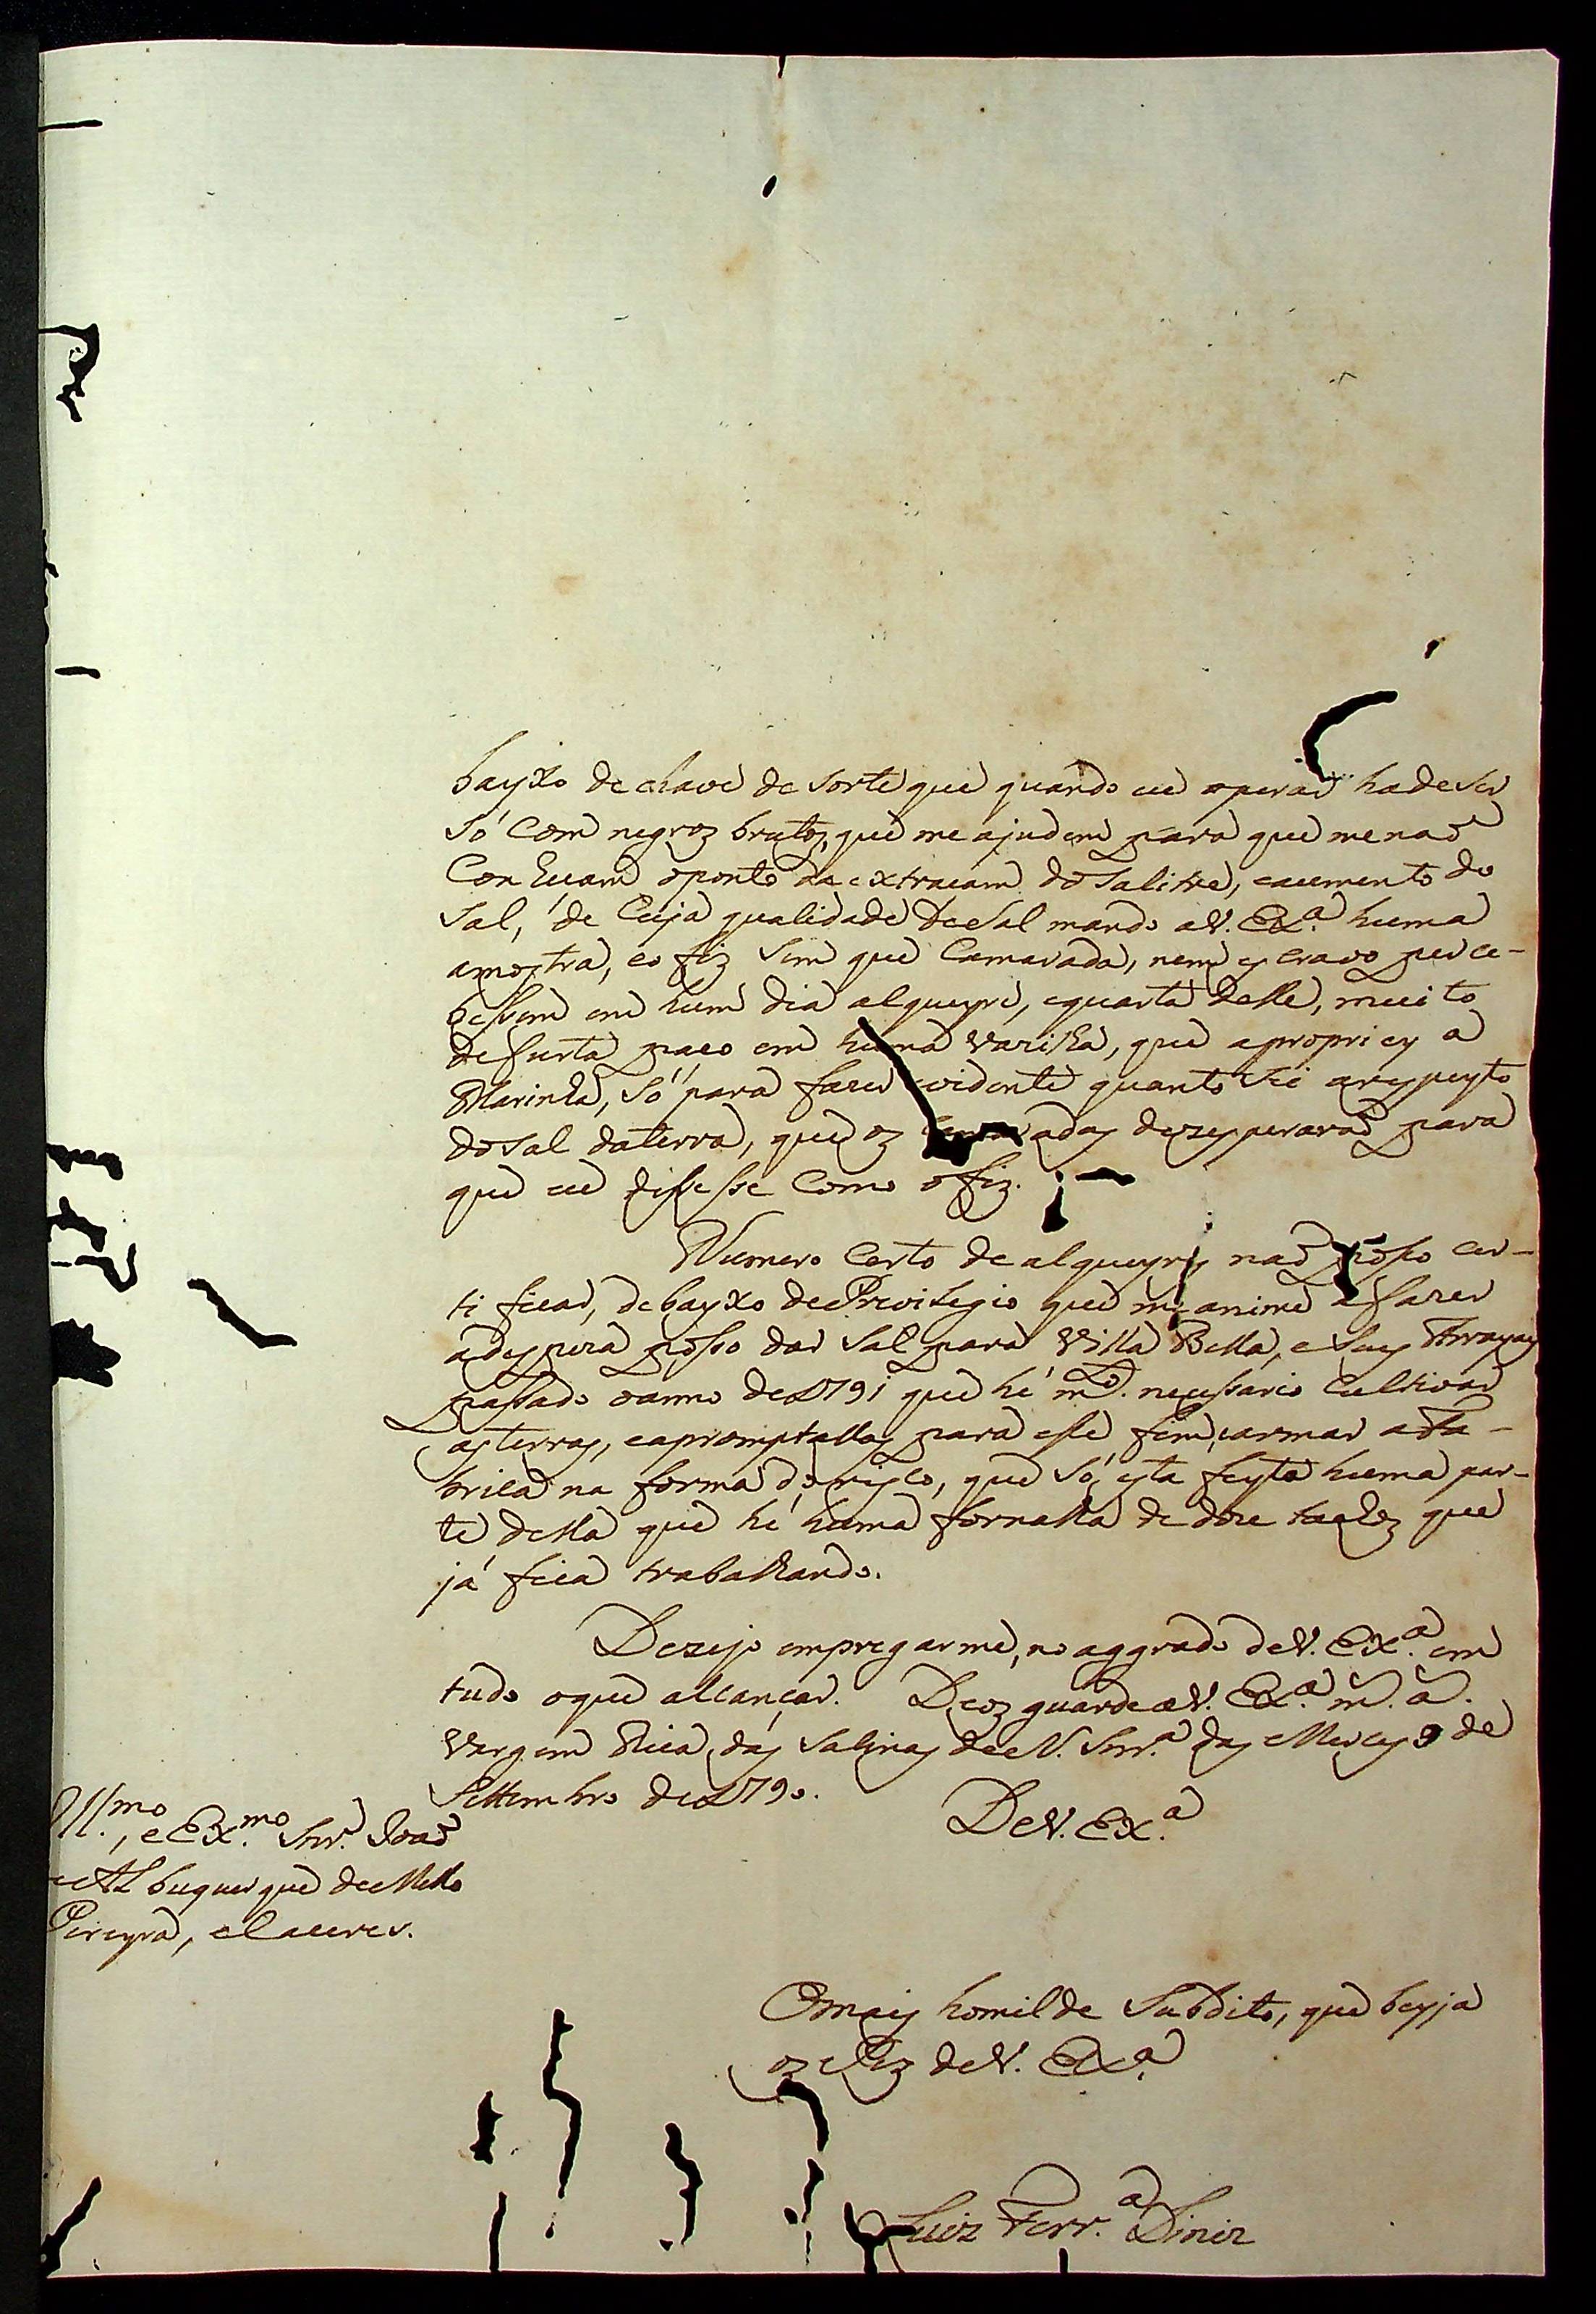 bayxo de chave de sorte que quando eu operar ha de ser
só com negroz brutoz, que me ajudem para que me naõ
Conheçam o ponto da extraçam do salitre, e aumento do
sal, de cuja qualidade de sal mando a V. Exª. huma
amostra, e o fiz sem que Camarada, nem escravo perce-
bessem em hum dia alqueyre, e quarta delle, muito
de furta paço em huma Vazilha, que apropriey a
Marinha, só para fazer evidente quanto hé a respeyto
do sal da terra, que oz adas dezesperaraõ para
que eu dissesse como o fiz.
Numero Certo de alqueyres naõ posso cer-
tificar, debayxo de Previlegio que me anime a fazer
a despeza posso dar sal para Villa Bella, e seus Arrayas
passado o anno de 1791 que hé m.to necessario cultivar
as terras, e apromptallas para esse fim, e armar a Fa-
brica na forma do risco, que só esta feyta huma par-
te della que hé huma fornalha de doze taxoz que
já fica trabalhando.
Dezejo empregarme, no aggrado de V. Exª. em
tudo o que alcançar. Deoz guarde a V. Exª. m. a.
Vargem Rica das Salinas de N. Snr.ª das Merces 9 de
Settembro de 1790.
De V. Exª.
Ill.mo, e Ex.mo Snr. Joaõ
Albuquerque de Mello
Pereyra, e Caceres.
O mais homilde Subdito, que beyja
oz Pez de V. Exª.
Luiz Ferr.ª Diniz